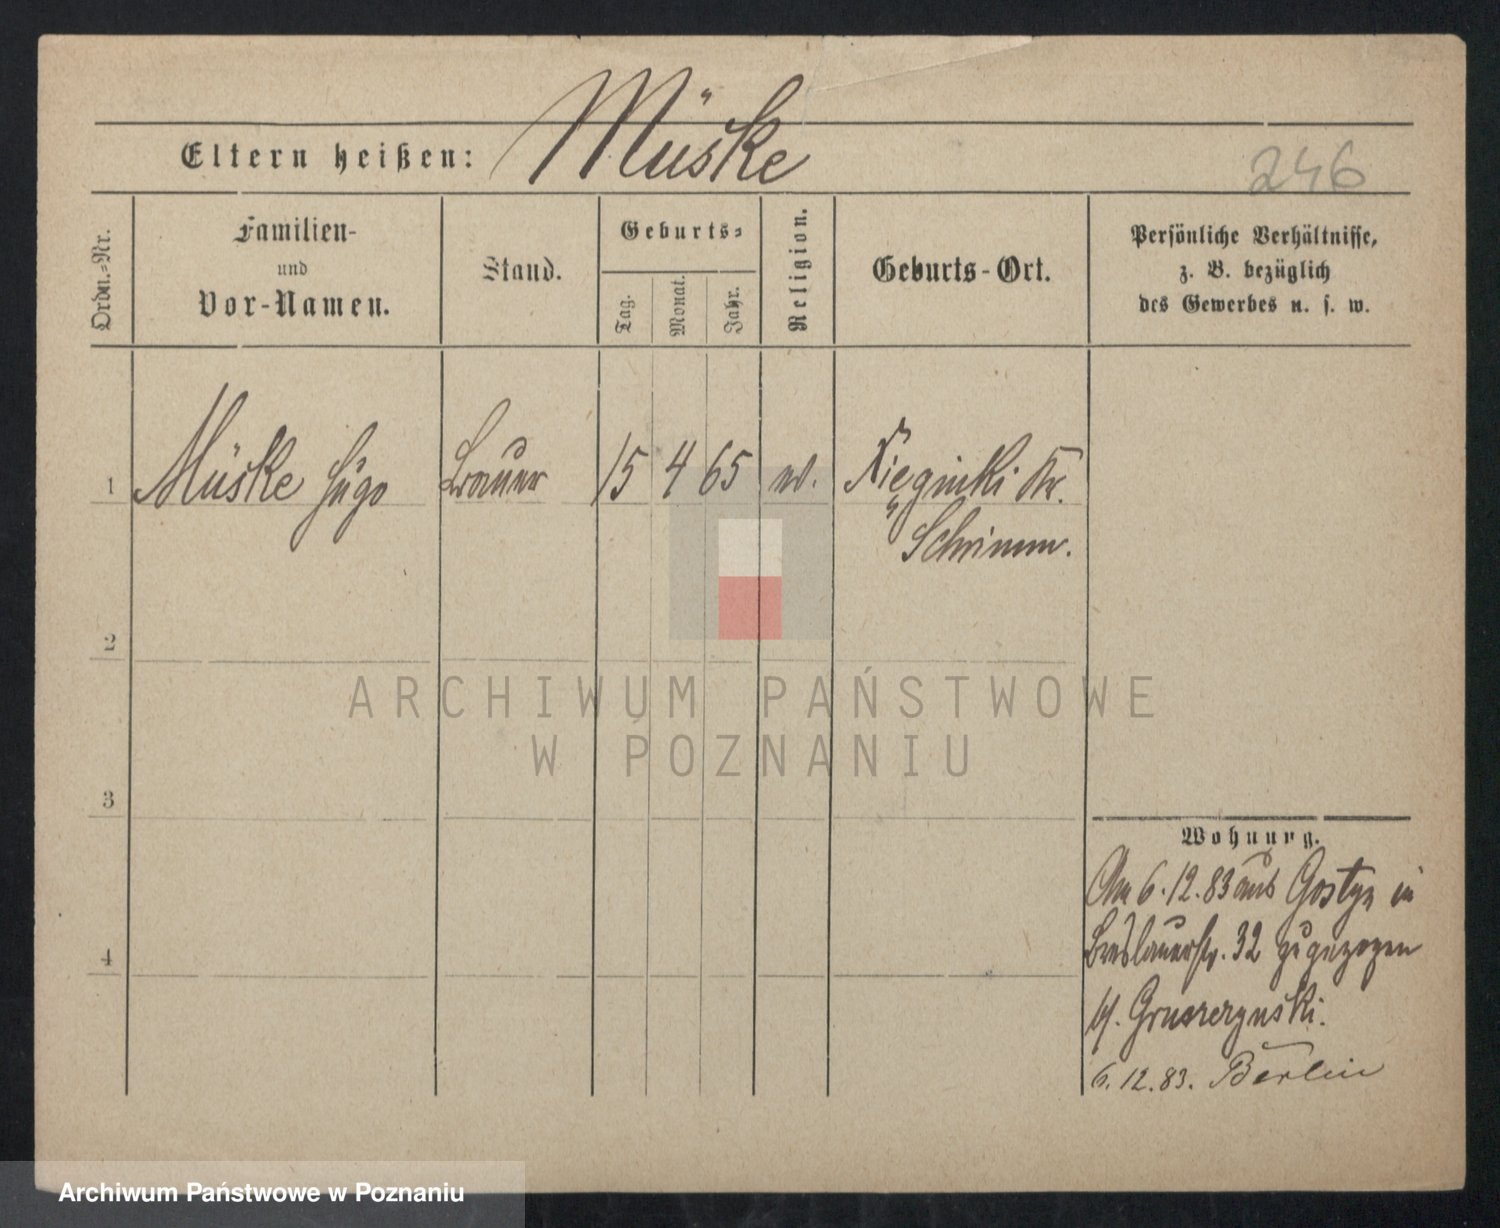 Müske
Eltern heißen:
246
Ordn.-Nr.
Familien-
und
Vor-Namen.
Stand.
Geburts-
Tag.
Monat.
Jahr.
Religion.
Geburts-Ort.
Persönliche Verhältnisse,
z. B. bezüglich
des Gewerbes u. s. w.
1 Müske Hugo Brauer 15 4 65 ev. Xięginki Kr.
Schrimm.
2
3
4
ARCHIWUM PAŃSTWOWE
W POZNANIU
Wohnung.
Am 6.12.83 aus Gostyn in
Breslauerstr. 32 zugezogen
Gruszczynski.
6.12.83. Berlin
Archiwum Państwowe w Poznaniu